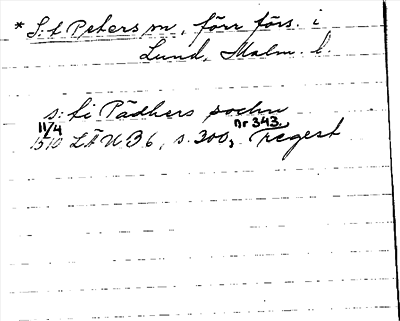 * S:t Peters sn, förr förs. i
Lund, Malm. l.
s:ti Pädhers sochn
11/4 nr 343.
1510 LÄU 36, s. 300, regest